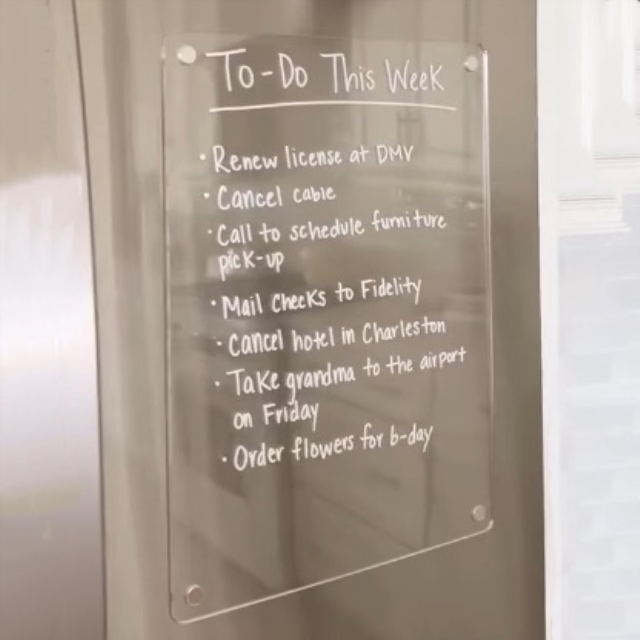 To-Do This Week
• Renew license at DMV
• Cancel cable
• Call to schedule furniture
pick-up
• Mail Checks to Fidelity
• Cancel hotel in Charleston
• Take grandma to the airport
on Friday
• Order flowers for b-day